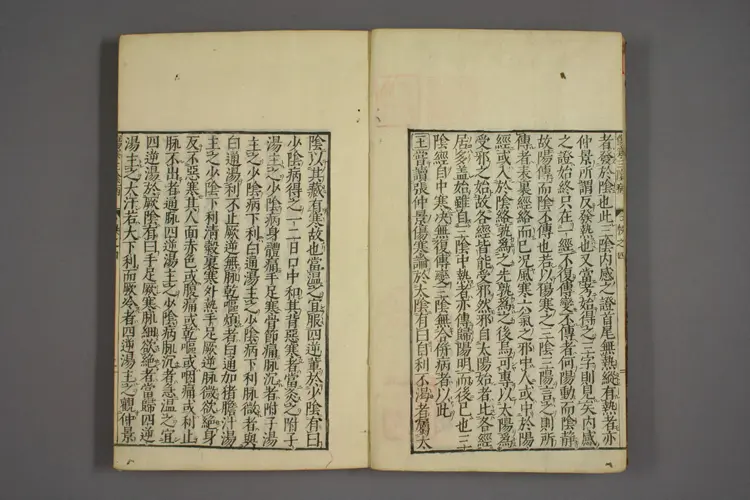 者發於陰也此三陰内感之證首尾無熱縱有熱者亦
仲景所謂反發熱也又當考始得之三字則見矣内感
之證始終只在一經不復傳變不傳者何陽動而陰靜
故陽傳而陰不傳也若以傷寒之三陰三陽言之則所
傳者表裏經絡而已况風寒六氣之邪中人或出於陽
經或入於陰絡孰爲之先孰爲之後焉可專以太陽爲
受邪之始故各經皆能受邪然邪自太陽始者此各經
居多蓋始雖自三陰中熱者亦傳歸陽明而後已也三
陰經自中寒決無復傳變三陰無合併病者以此
王嘗讀張仲景傷寒論於太陰有曰自利不渴者屬太
陰以其藏有寒故也當温之宜服四逆輩於少陰有曰
少陰病得之一二日口中和其背惡寒者當灸之附子
湯主之少陰病身體痛手足寒骨節痛脉沉者附子湯
主之少陰病下利白通湯主之少陰病下利脉微者與
白通湯利不止厥逆無脉乾嘔煩者白通加猪膽汁湯
主之少陰下利清穀裏寒外熱手足厥逆脉微欲絶身
反不惡寒其人面赤色或腹痛或乾嘔或咽痛或利止
脉不出者通脉四逆湯主之少陰病脉沉者急温之宜
四逆湯於厥陰有曰手足厥寒脉細欲絶者當歸四逆
湯主之大汗若大下利而厥冷者四逆湯主之觀仲景